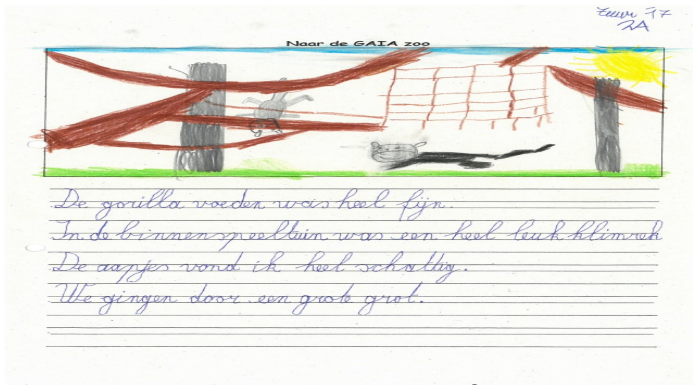 Naar de GAIA zoo
De gorilla voeden was heel fijn.
In de binnenspeeltuin was een heel leuk klimrek
De aapjes vond ik heel schattig.
We gingen door een grote grot.